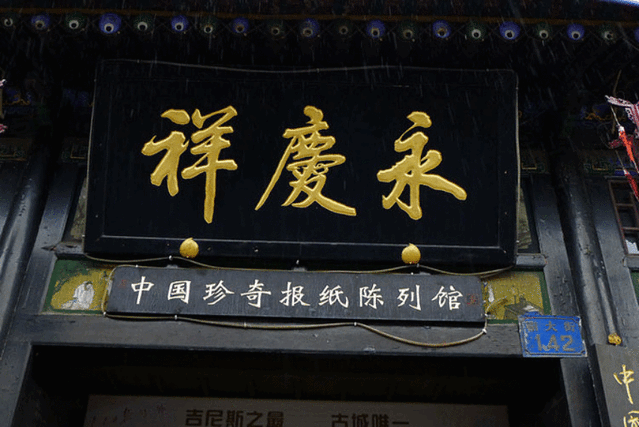 祥慶永
中国珍奇报纸陈列馆
西大街
142
吉尼斯之最 古城唯一
中国